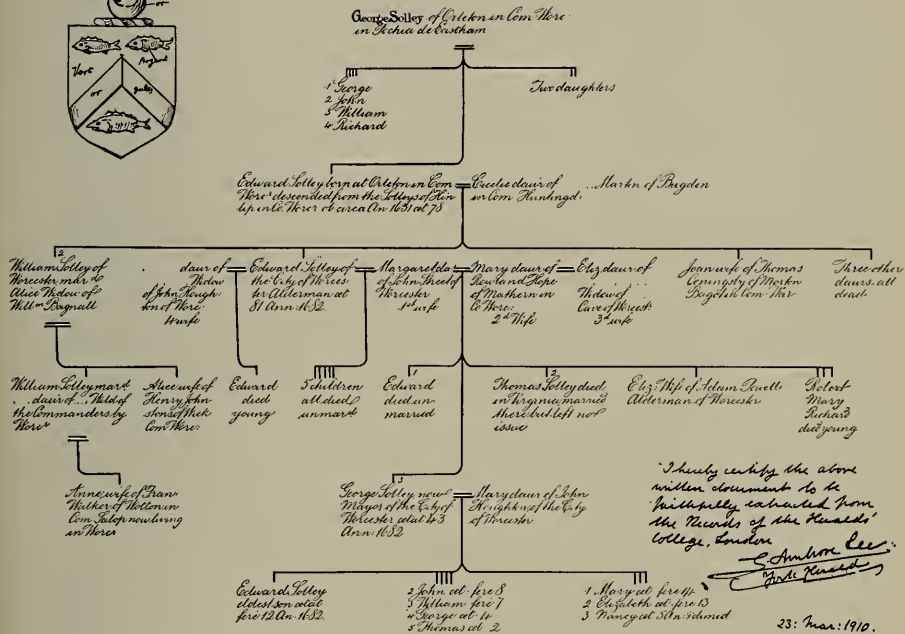 or
Vert
Argent
or
gules
George Solley of Orleton in Com Worc
in Pochia de Eastham
1 George
2 John
3 William
4 Richard
Two daughters
Edward Solley born at Orleton in Com
Worcr descended from the Solleys of Hin
lip in Co. Worcr ob circa An 1651 æt 78
Cecilie daur of
in Com Huntingd.
... Martin of Bugden
2
William Solley of
Worcester mard
Alice Widow of
Willm Bagnall
. daur of
Widow
of John Hough-
ton of Worc
4 wife
Edward Solley of
the City of Worces-
ter Alderman æt
81 Ann. 1682.
Margaret da
of John Street of
Worcester
1st wife
Mary daur of
Rowland Hope
of Mathern in
Co Worc:
2d Wife
Eliz. daur of
Widow of
Cave of Worcest:
3d wife
Joan wife of Thomas
Coningsby of Morton
Bagot in Com War
Three other
daurs. all
dead.
William Solley mard
. daur of ... Wild of
the Commanders by
Worcr
Alice wife of
Henry John
stons of Wick
Com Worc:
Edward
died
young
5 children
all died
unmard
1
Edward
died un-
married
2
Thomas Solley died
in Virginia, married
there but left no
issue
Eliz: Wife of Adam Powell
Alderman of Worcester
Robert
Mary
Richard
died young
Anne wife of Fran
Walker of Wotton in
Com Salop now living
in Worcr
3
George Solley now
Mayor of the City of
Worcester ætat 43
Ann: 1682
Mary daur of John
Houghton of the City
of Worcester
Edward Solley
eldest son ætat
fere 12 An. 1682.
2 John æt fere 8
3 William fere 7
4 George æt 4
5 Thomas æt 2
1 Mary æt fere 14
2 Elizabeth æt fere 13
3 Nancy æt 5 An: & dimid
I hereby certify the above
written document to be
faithfully extracted from
the Records of the Heralds'
College, London
G. Ambrose Lee
York Herald
23: Mar: 1910.